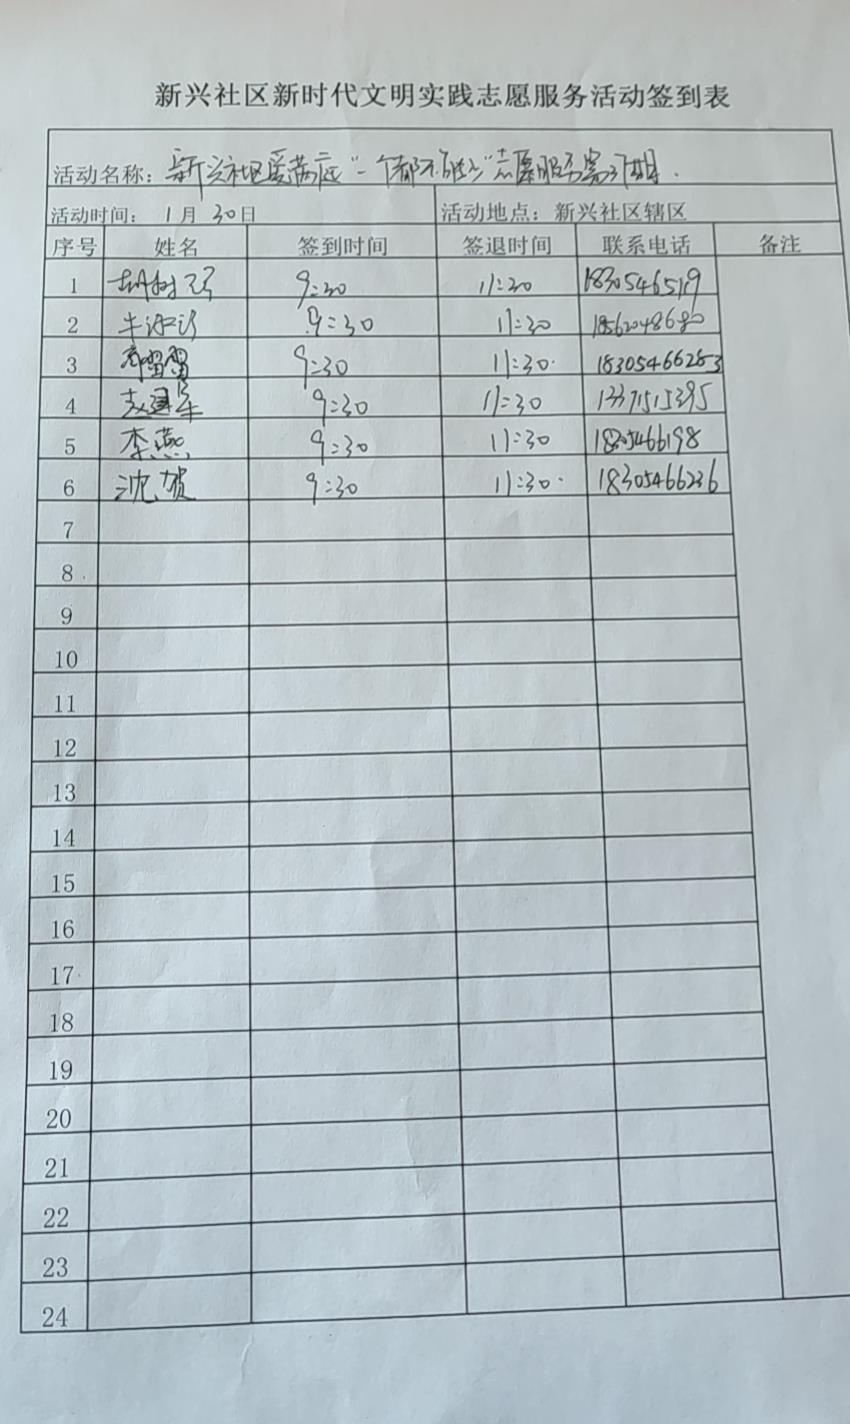 新兴社区新时代文明实践志愿服务活动签到表
活动名称：新兴社区爱满庭“一个都不能少”志愿服务
活动时间： 1月 30日 活动地点：新兴社区辖区
序号 姓名 签到时间 签退时间 联系电话 备注
1 胡树 9:30 11:30 1830546519
2 牛 9:30 11:30 18562048680
3 雷雷 9:30 11:30 18305466283
4 赵建军 9:30 11:30 13371515395
5 李燕 9:30 11:30 1830466198
6 沈贺 9:30 11:30 18305466236
7
8
9
10
11
12
13
14
15
16
17
18
19
20
21
22
23
24